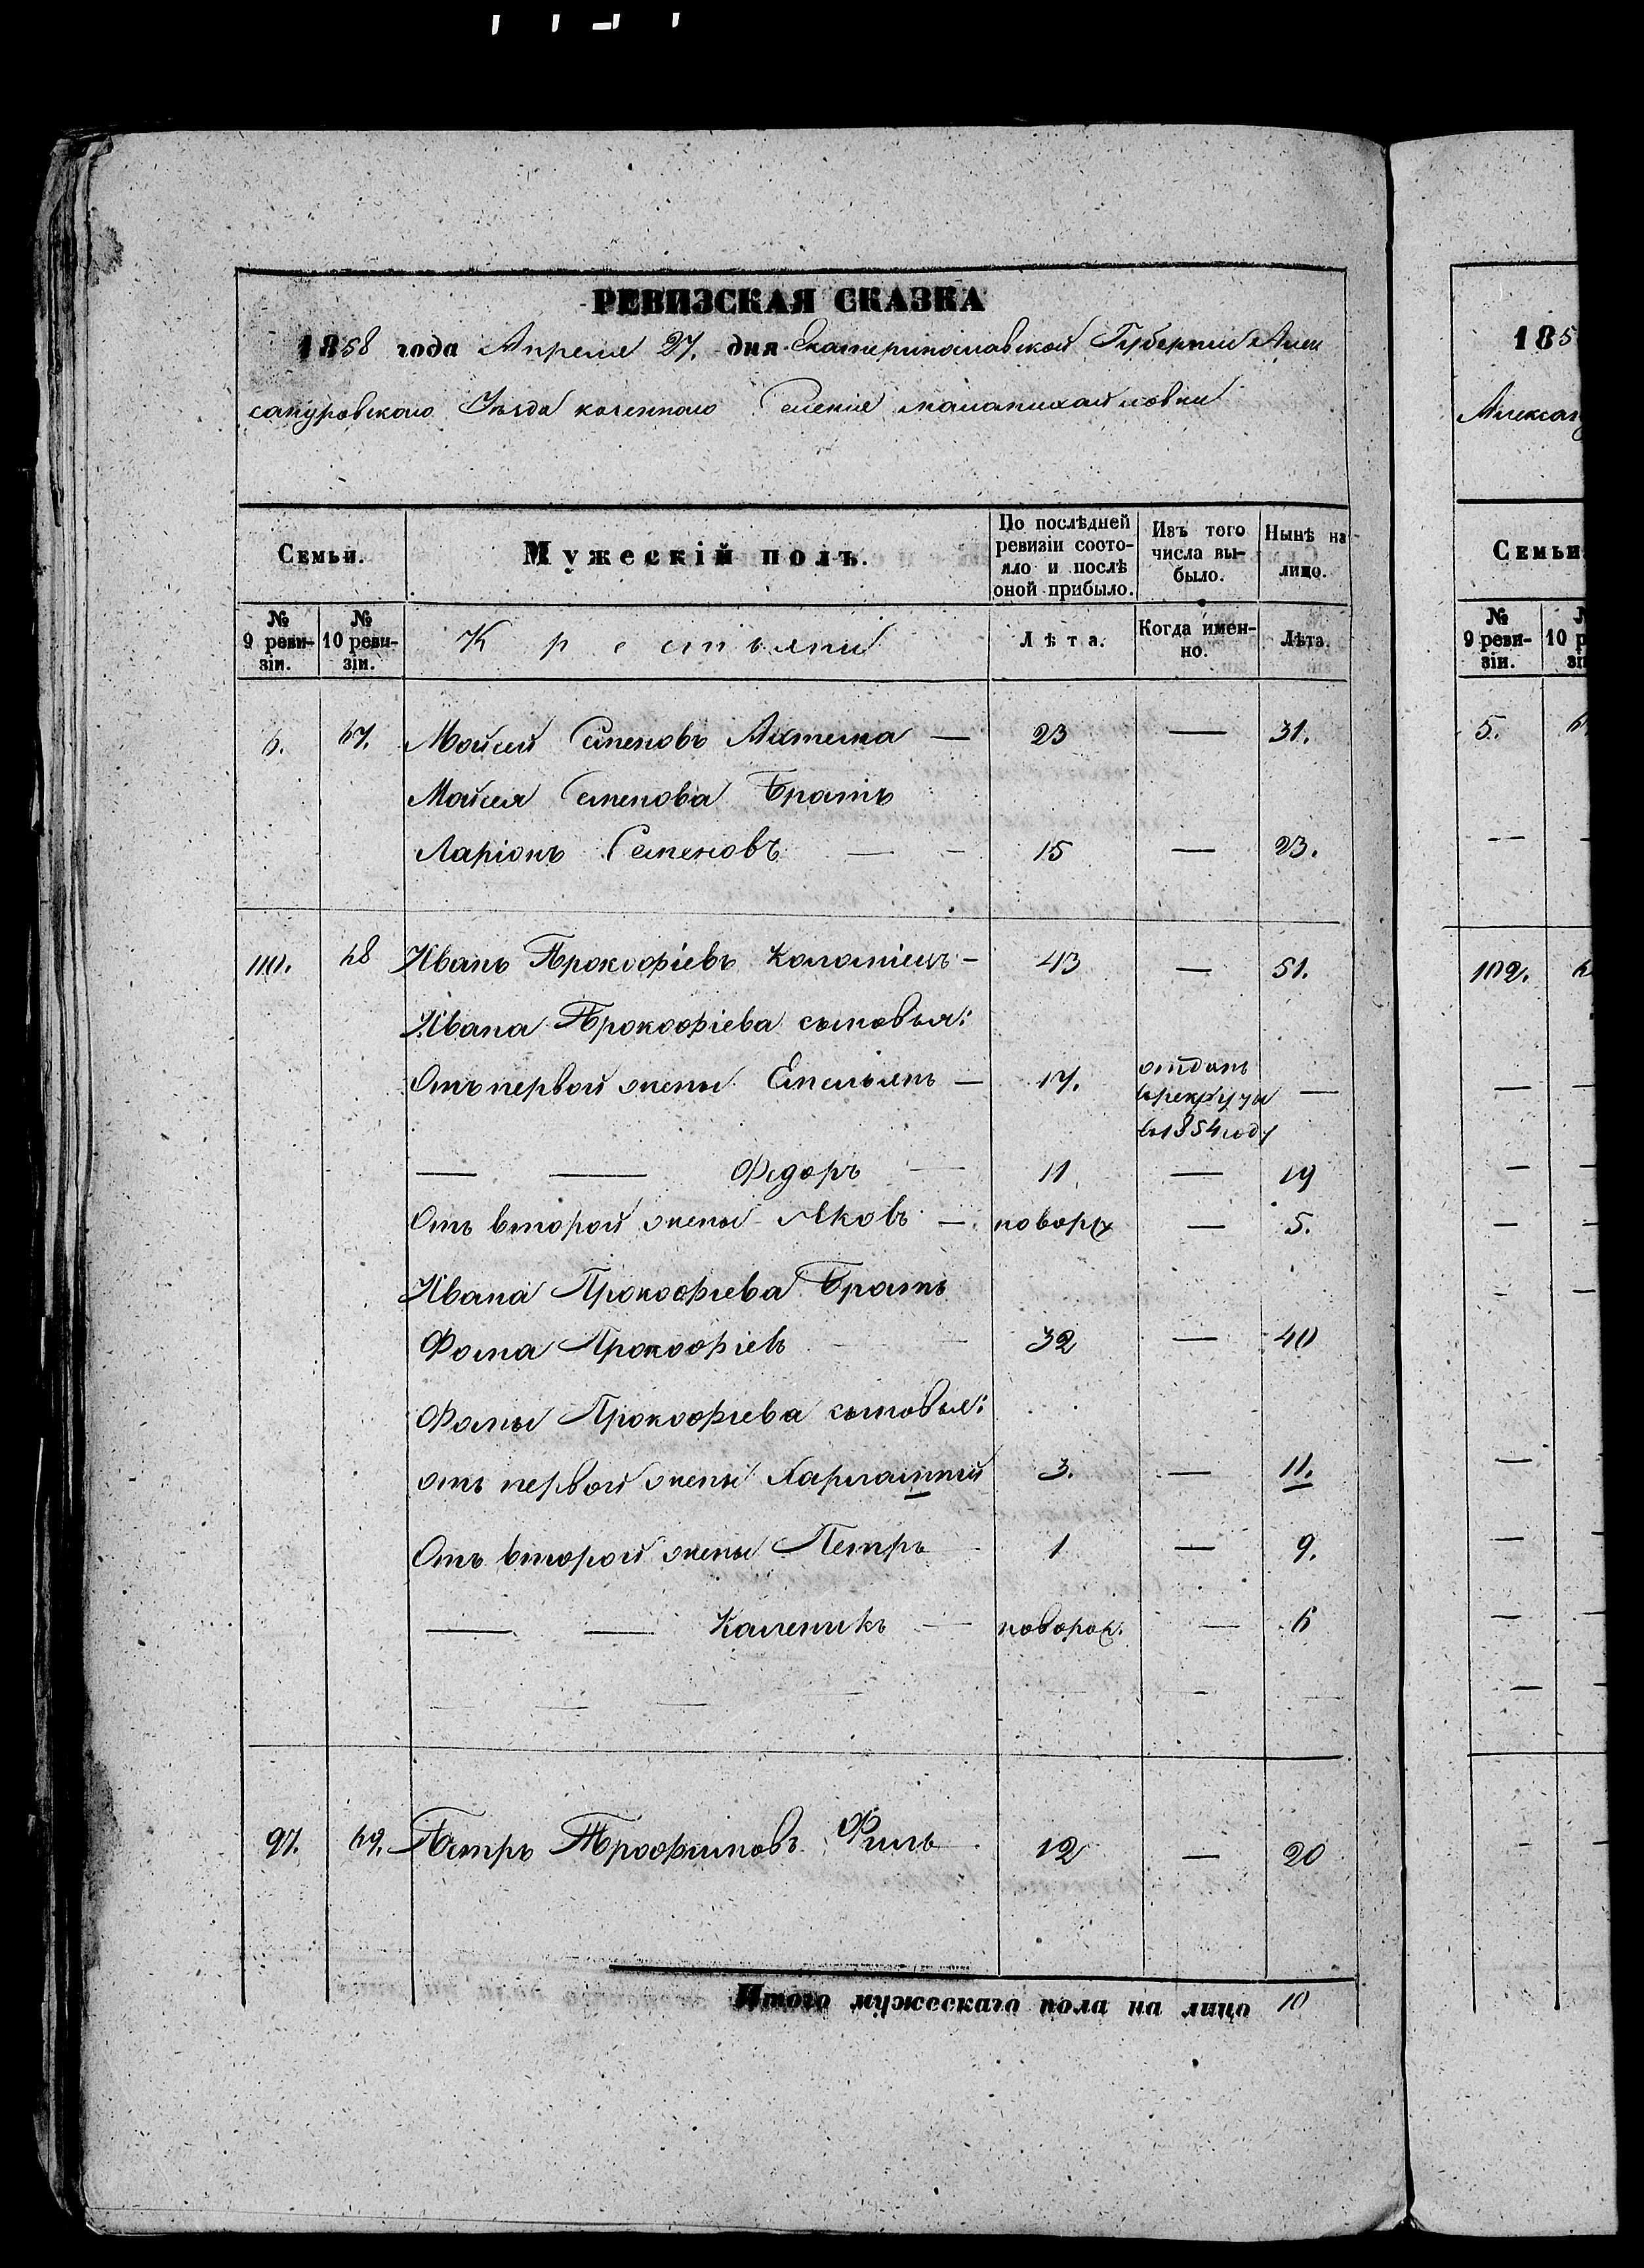 РЕВИЗСКАЯ СКАЗКА
1858 года Апреля 27. дня Екатеринославской Губернии Алек
сандровскаго Уѣзда казеннаго Селенія маламихайловки
Семьи. Мужескій полъ. По послѣдней ревизіи состояло и послѣ оной прибыло. Изъ того числа выбыло. Нынѣ на лицо.
№ 9 ревизіи. № 10 ревизіи. Крестьяни Лѣта. Когда именно. Лѣта.
6. 67. Мойсей Семеновъ — 23 — 31.
Мойсея Семенова Братъ
Ларіонъ Семеновъ — — 15 — 23.
110. 68 Иванъ Прокофіевъ Коломіецъ — 43 — 51.
Ивана Прокофіева сыновья:
Отъ первой жены Емельянъ — 17. отданъ —
врекруты
въ1854году
— — Федоръ — 11 — 19
Отъ второй жены Яковъ — новорож — 5.
Ивана Прокофіева Братъ
Фома Прокофіевъ — 32 — 40
Фомы Прокофіева сыновья:
отъ первой жены Харлампий 3. — 11.
Отъ второй жены Петръ - 1 — 9.
— — Каленикъ — новорож. — 6
— — — — — — —
97. 69. Петръ Трофимовъ Филь 12 — 20
Итого мужескаго пола на лицо 10
185
Алексан
Семьи
№ 9 ревизіи. 10
5.
102.